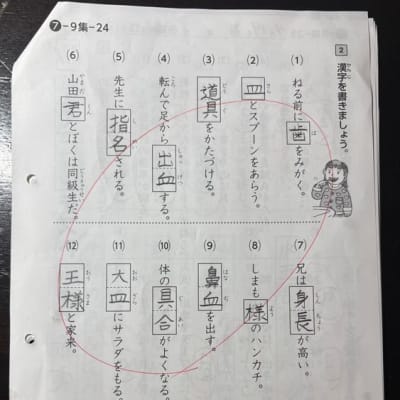 ❼-9集-24
2 漢字を書きましょう。
(1) ねる前に歯をみがく。
(2) 皿とスプーンをあらう。
(3) 道具をかたづける。
(4) 転んで足から出血する。
(5) 先生に指名される。
(6) 山田君とぼくは同級生だ。
(7) 兄は身長が高い。
(8) しまも様のハンカチ。
(9) 鼻血を出す。
(10) 体の具合がよくなる。
(11) 大皿にサラダをもる。
(12) 王様と家来。